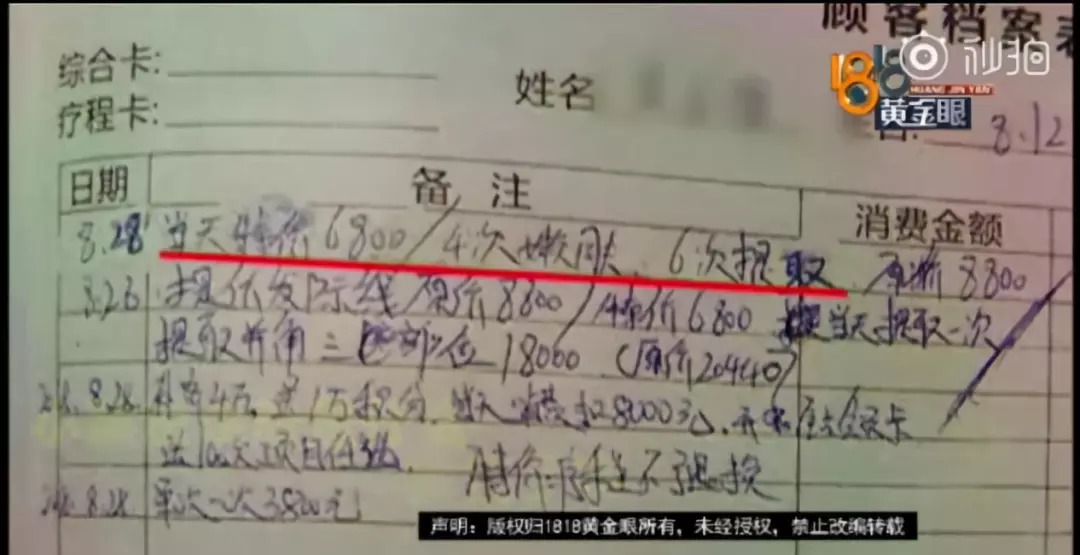 顾客档案表
秒拍
1818
HUANG JIN YAN
黄金眼
综合卡:
疗程卡:
姓名
8.12
日期 备注 消费金额
8.28 当天特价6800/4次嫩肤、6次提取 原价8800
8.26 发际线原价8800/特价6800 当天提取一次
提取 三 部位18000(原价20440)
8.28. 4万,送1万积分,当天消费扣8000元, 卡
送10次项目任 特价: 不退换
8.28. 单次一次3800元
声明:版权归1818黄金眼所有,未经授权,禁止改编转载